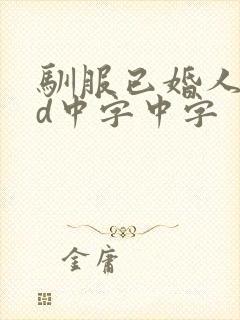 馴服已婚人
d中字中字
金庸